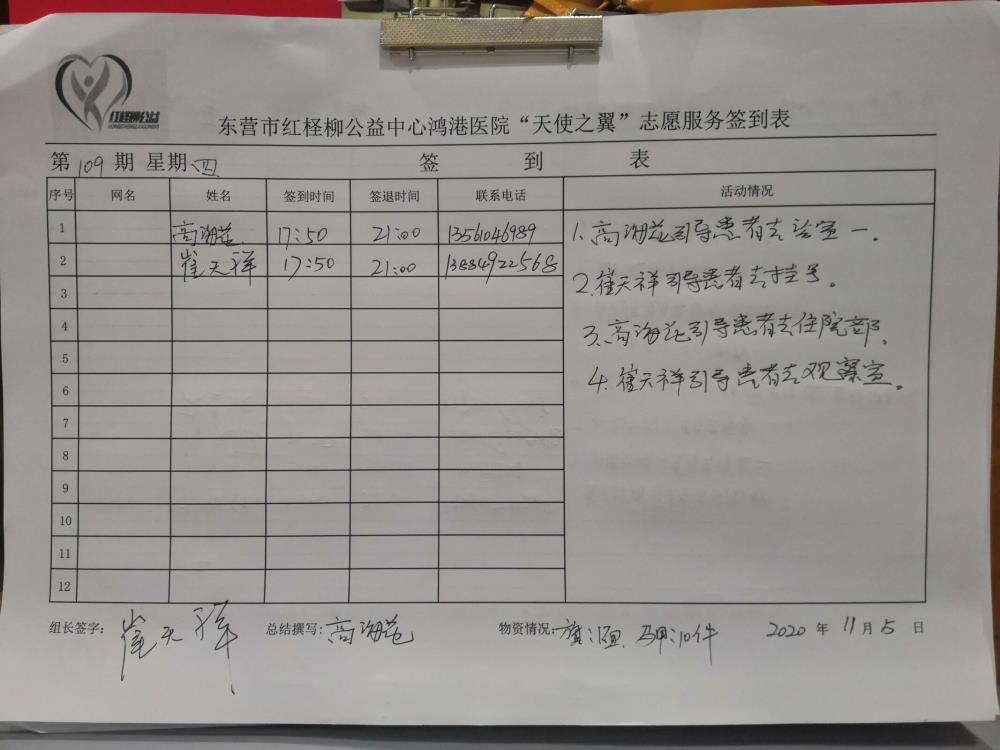 红柽柳公益
东营市红柽柳公益中心鸿港医院“天使之翼”志愿服务签到表
第109期 星期四 签到表
序号 网名 姓名 签到时间 签退时间 联系电话 活动情况
1 高海花 17:50 21:00 13561046989
2 崔天祥 17:50 21:00 13884922568
3
4
5
6
7
8
9
10
11
12
1.高海花引导患者去诊室一.
2.崔天祥引导患者去挂号。
3.高海花引导患者去住院部.
4.崔天祥引导患者去观察室。
组长签字:崔天祥 总结撰写:高海花 物资情况: 马甲:10件 2020年11月5日